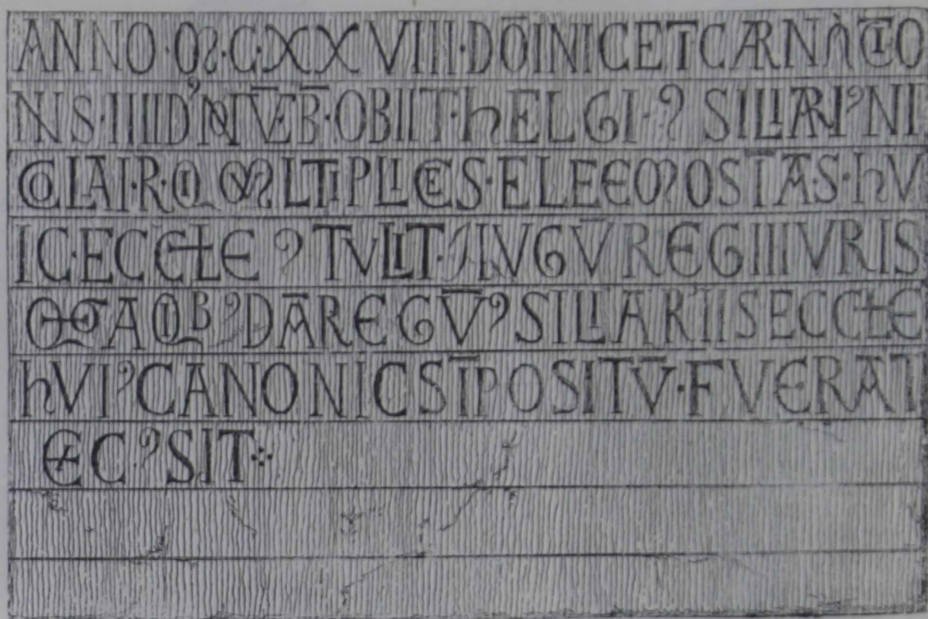 ANNO·M·C·XXVIII·DŌINICE ĪCARNATIO
NIS·IIII ID' NŌVĒB·OBIIT·hELGI·ꝯSILIARIꝰ NI
COLAI·R·Q MVLTIPLICES·ELEEMOSĪAS·hV
IC·ECCLE ꝯTVLIT·IVGV̄ REGII IVRIS
A QIBꝰDĀ REGV̄ ꝯSILIARIIS ECCLE
hVIꝰ CANONICS ĪPOSITV̄·FVERAT
ꝯSIT